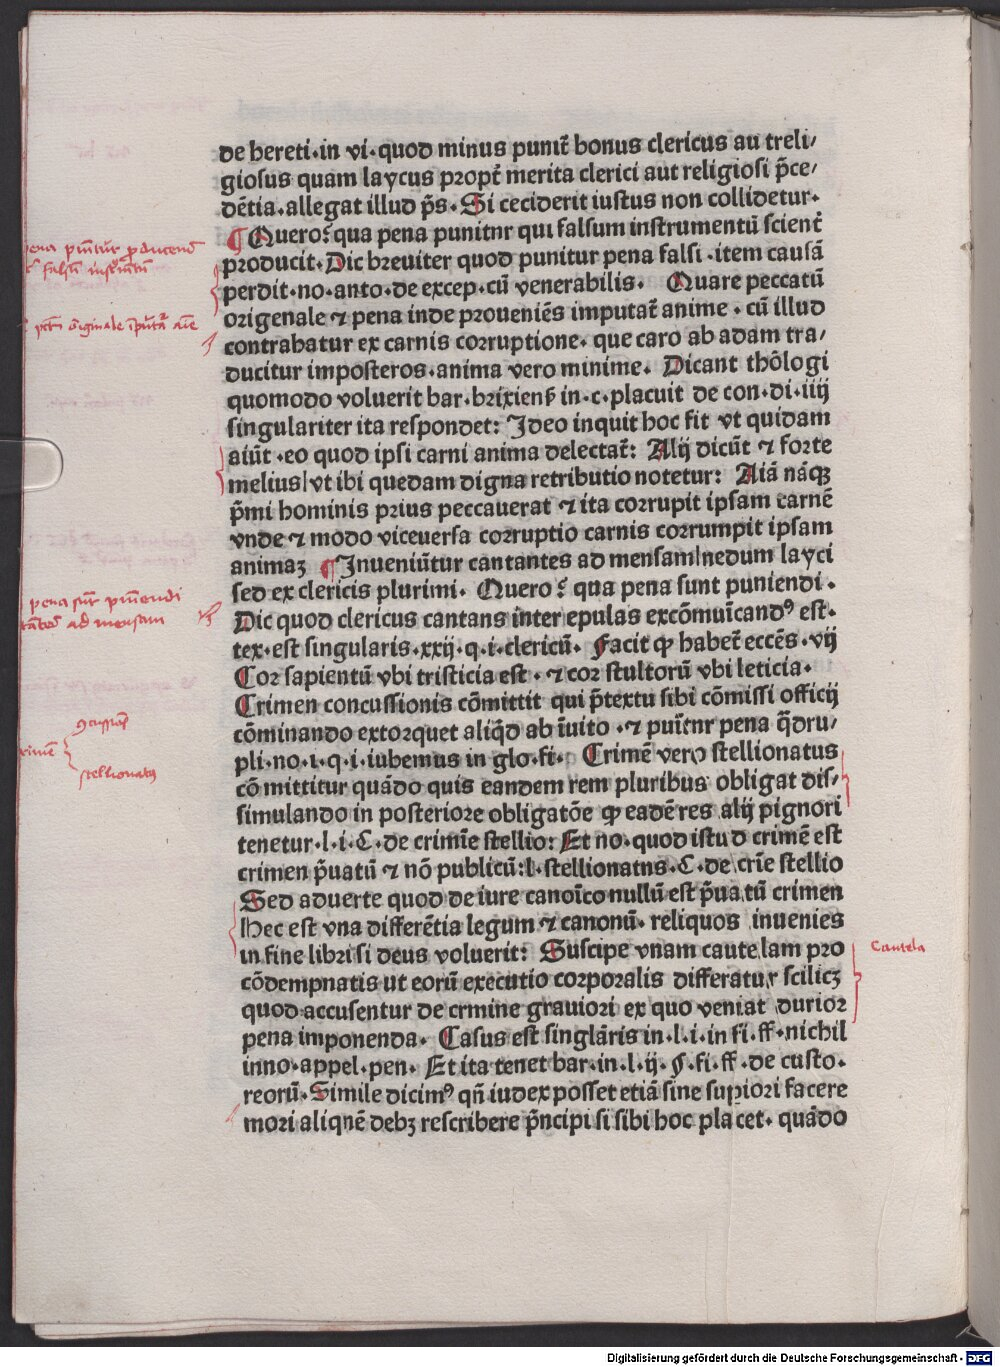 de hereti·in vi·quod minus punit̄ bonus clericus au treli/
giosus quam laycus propt̄ merita clerici aut religiosi p̄ce/
dētia·allegat illud p̄s·Si ceciderit iustus non collidetur·
¶ Quero? qua pena punitnr qui falsum instrumentū scient̄
producit·Dic breuiter quod punitur pena falsi·item causā
perdit·no·anto·de excep·cū venerabilis· Quare peccatū
origenale ⁊ pena inde proueniēs imputat̄ anime·cū illud
contrahatur ex carnis corruptione·que caro ab adam tra/
ducitur imposteros·anima vero minime· Dicant thōlogi
quomodo voluerit bar·brixienẜ in·c·placuit de con·di·iiij
singulariter ita respondet: Ideo inquit hoc fit vt quidam
aiūt·eo quod ipsi carni anima delectat̄: Alij dicūt ⁊ forte
melius|vt ibi quedam digna retributio notetur: Aiā nāqꝫ
p̄mi hominis prius peccauerat ⁊ ita corrupit ipsam carnē
vnde ⁊ modo viceuersa corruptio carnis corrumpit ipsam
animaꝫ ¶ Inueniūtur cantantes ad mensam|nedum layci
sed ex clericis plurimi· Quero? qua pena sunt puniendi·
Dic quod clericus cantans inter epulas excōmuīcandꝰ est·
tex·est singularis·xxij·q·i·clericū· Facit ꝙ habet̄ eccēs·vij
Cor sapientū vbi tristicia est·⁊ cor stultorū vbi leticia·
Crimen concussionis cōmittit qui p̄textu sibi cōmissi officij
cōminando extorquet aliq̄d ab īuito·⁊ puītnr pena q̄dru/
pli·no·i·q·i·iubemus in glo·fi· Crimē vero stellionatus
cō mittitur quādo quis eandem rem pluribus obligat dis/
simulando in posteriore obligatōe ꝙ eadē res alij pignori
tenetur·l·i·C·de crimīe stellio: Et no·quod istu d crimē est
crimen p̄uatū ⁊ nō publicū:l·stellionatns·C·de crīe stellio
Sed aduerte quod de iure canoīco nullū est p̄ua tū crimen
Hec est vna differētia legum ⁊ canonū·reliquos inuenies
in fine libri si deus voluerit: Suscipe vnam caute lam pro
cōdempnatis ut eorū executio corporalis differatur scilicꝫ
quod accusentur de crmine grauiori ex quo veniat durior
pena imponenda· Casus est singlāris in·l·i·in fi·ff·nichil
inno·appel·pen· Et ita tenet bar·in·l·ij·§·fi·ff·de custo·
reorū·Simile dicimꝰ qn̄ iudex posset etiā sine supiori facere
mori aliqnē debꝫ rescribere p̄ncipi si sibi hoc pla cet·quādo
falsū instrm̄tū
originale
pena sūt puniendi
ad mensam
stellionatus
Cautela
Digitalisierung gefördert durch die Deutsche Forschungsgemeinschaft - DFG